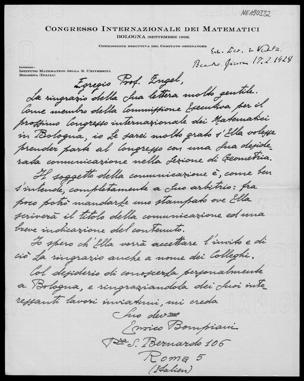 NE180332
CONGRESSO INTERNAZIONALE DEI MATEMATICI
BOLOGNA (SETTEMBRE 1928)
COMMISSIONE ESECUTIVA DEL COMITATO ORDINATORE
INDIRIZZO:
ISTITUTO MATEMATICO DELLA R. UNIVERSITÀ
BOLOGNA (ITALIA)
17.2.1928
Egregio Prof. Engel,
La ringrazio della Sua lettera molto gentile.
Come membro della Commissione Esecutiva per il
prossimo Congresso internazionale dei Matematici
in Bologna, io Le sarei molto grato s'Ella volesse
prender parte al Congresso con una Sua deside-
rata comunicazione nella Sezione di Geometria.
Il soggetto della comunicazione è, come ben
s'intende, completamente a Suo arbitrio: fra
poco potrò mandarLe uno stampato ove Ella
scriverà il titolo della comunicazione ed una
breve indicazione del contenuto.
Io spero ch'Ella vorrà accettare l'invito e di
ciò La ringrazio anche a nome dei Colleghi.
Col desiderio di conoscerLa personalmente
a Bologna, e ringraziandoLa dei Suoi inte-
ressanti lavori inviatimi, mi creda
Suo dev.mo
Enrico Bompiani
S. Bernardo 106
Roma 5
(Italien)